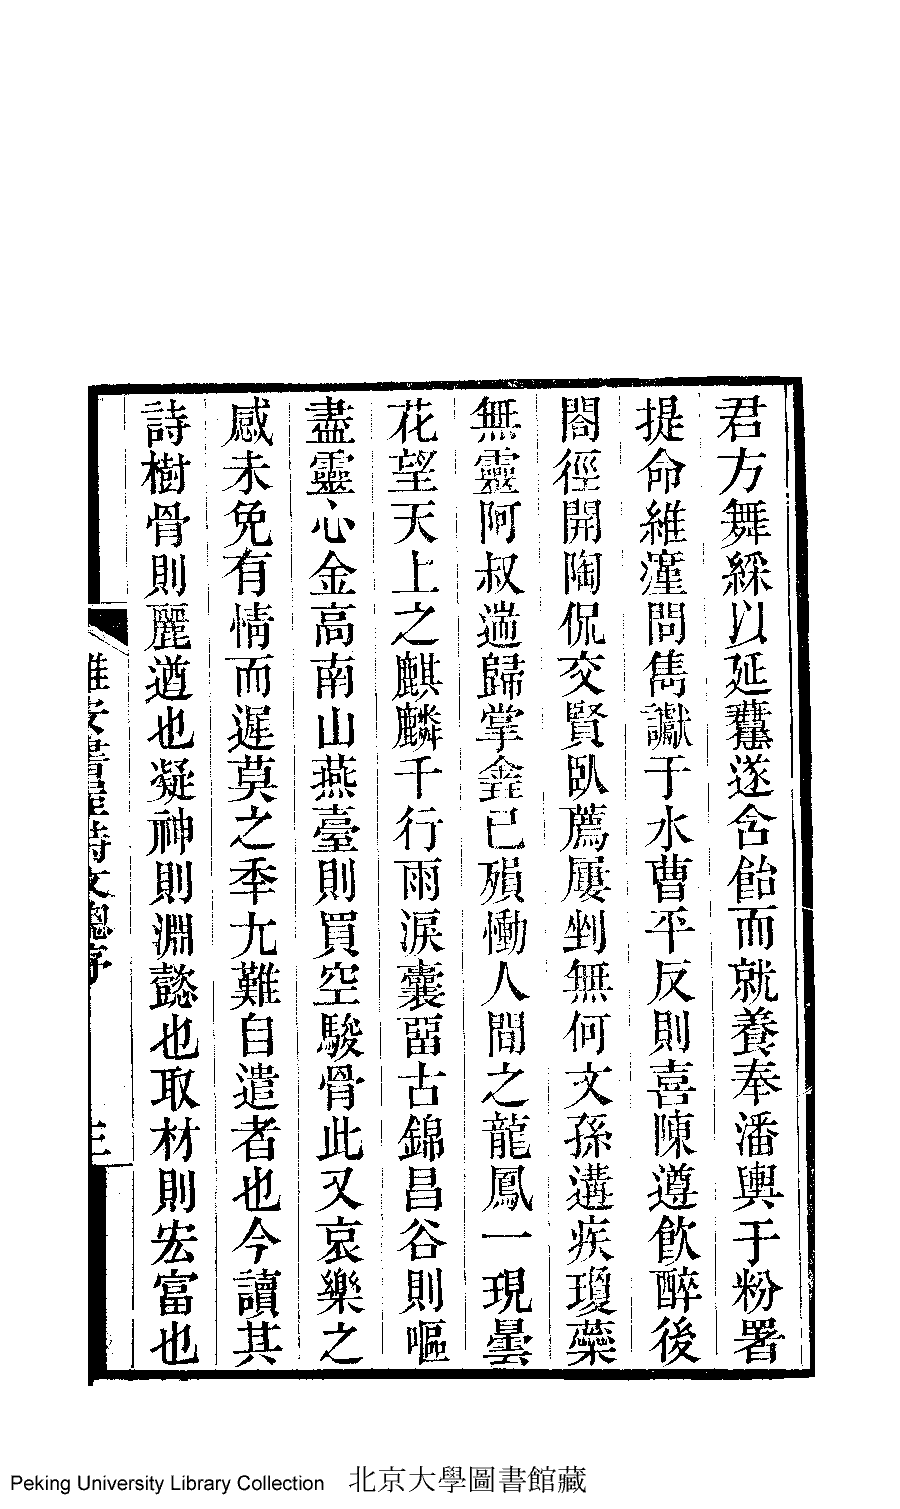 君方舞綵以延虀遂含飴而就養奉潘輿于粉署
提命維瀍問雋讞于水曹平反則喜陳遵飲醉後
閤徑開陶侃交賢臥薦屢剉無何文孫遘疾瓊蘂
無靈阿叔遄歸掌龕已殞慟人間之龍鳳一現曇
花望天上之麒麟千行雨淚囊畱古錦昌谷則嘔
盡靈心金高南山燕臺則買空駿骨此又哀樂之
感未免有情而遲莫之年尤難自遣者也今讀其
詩樹骨則麗遒也凝神則淵懿也取材則宏富也
雅安書屋詩文總序
三
Peking University Library Collection 北京大學圖書館藏